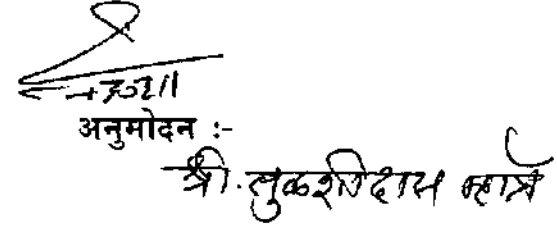 अनुमोदन :-
श्री. तुळशीदास म्हात्रे